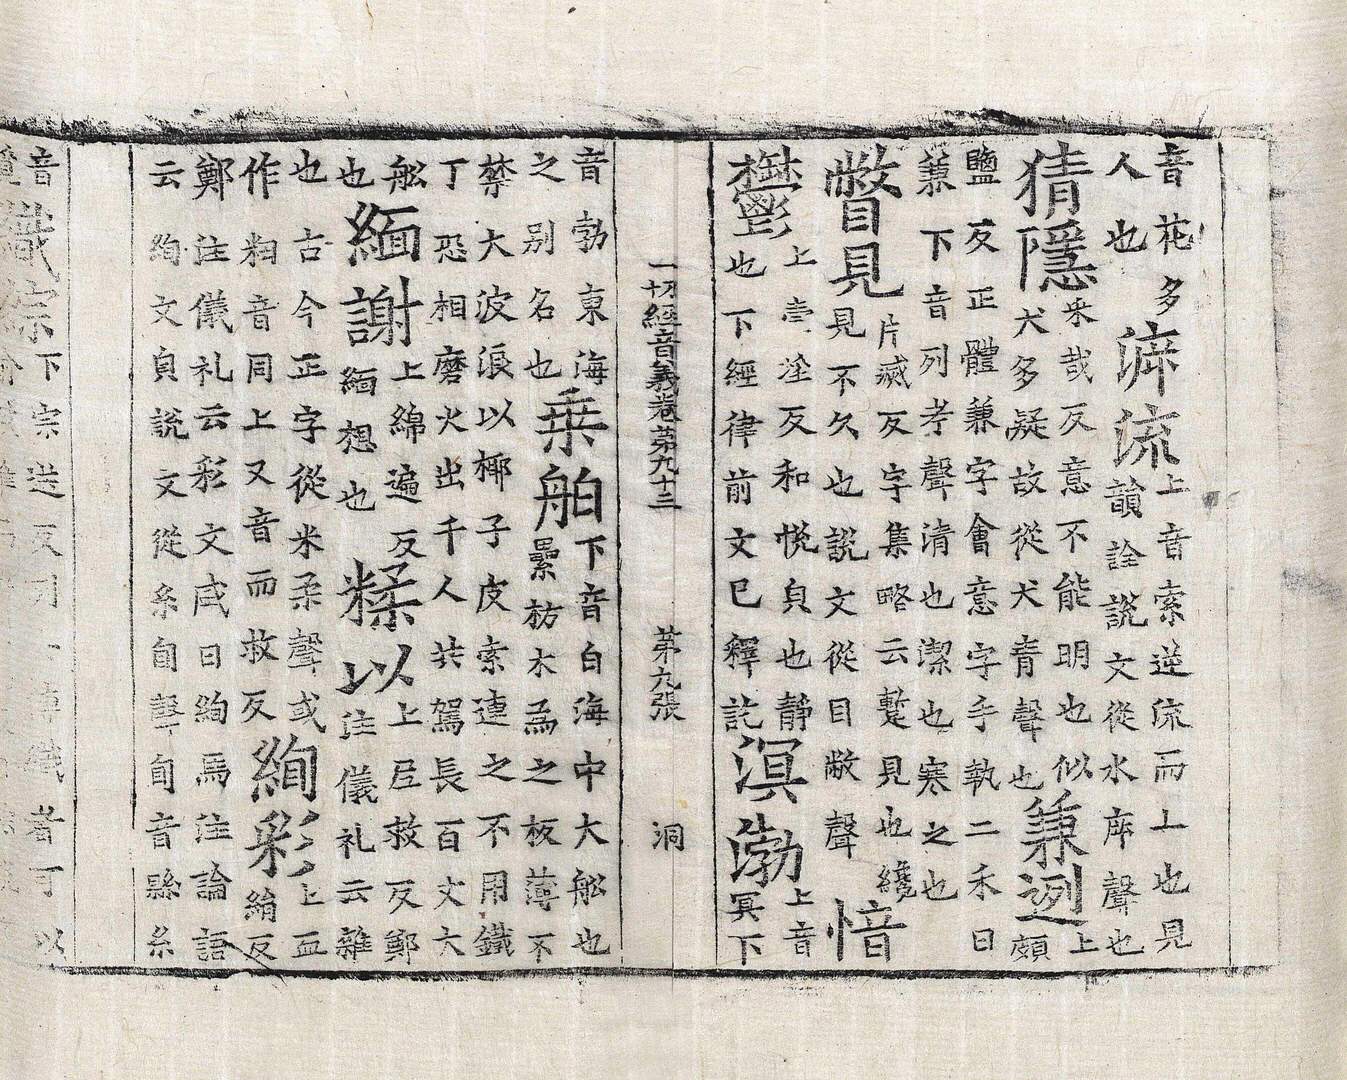 音花多
人也
泝流
上音索逆流而上也見
韻詮説文從水㡿聲也
猜隱
采哉反意不能明也似
犬多疑故從犬青聲也
兼迾
上
頰
鹽反正體兼字會意字手執二禾曰
兼下音列孝聲清也潔也寒之也
瞥見
片滅反字集略云蹔見也纔
見不久也説文從目敝聲
愔
鬱
上壹淫反和悦皃也靜
也下經律前文已釋訖
溟渤
上音
冥下
一切經音義卷第九十三 第九張 洞
音勃東海
之别名也
乗舶
下音白海中大舩也
累枋木爲之板薄不
禁大波浪以椰子皮索連之不用鐵
丁恐相磨火出千人共駕長百丈大
舩
也
緬謝
上綿遍反
緬想也
糅以
上尼救反鄭
注儀礼云雜
也古今正字從米柔聲或
作粈音同上又音而救反
絢彩
上血
絹反
鄭注儀礼云彩文成曰絢馬注論語
云絢文皃説文從糸旬聲旬音縣糸
音
織宗
下宗送反